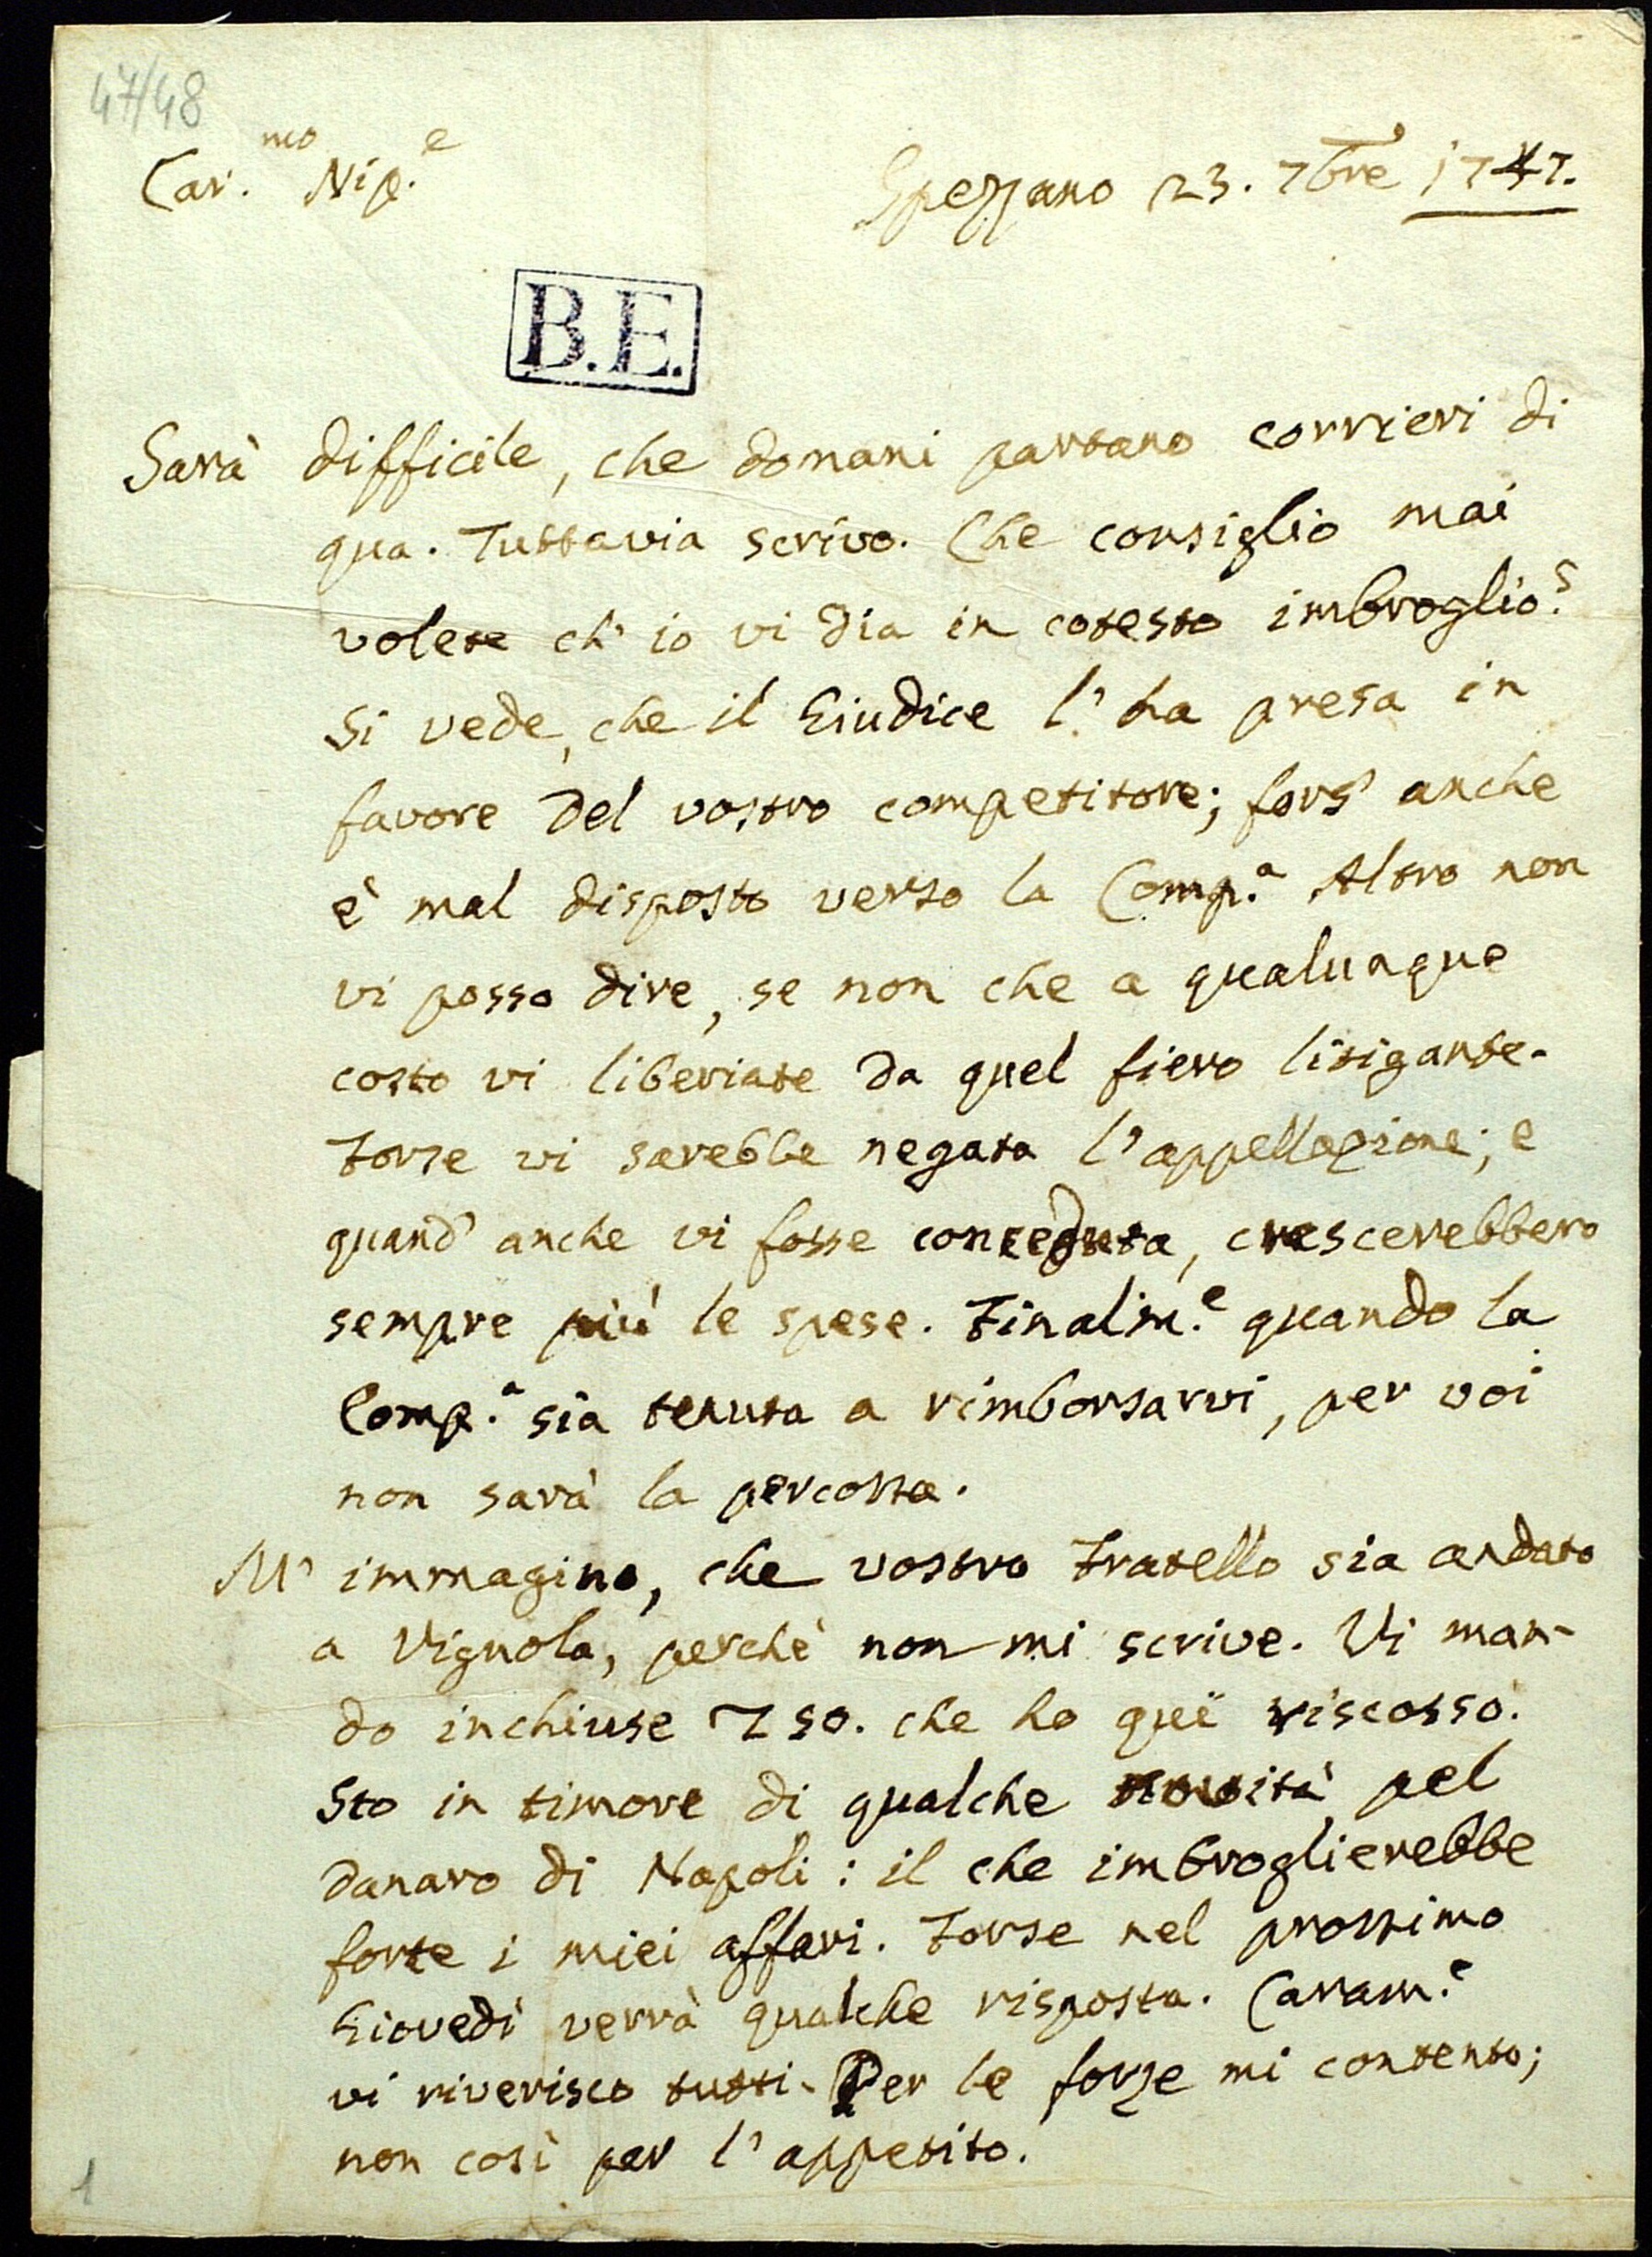 47/48
Car.mo Nip.e
Spezzano 23. 7bre 1747.
B.E.
Sarà difficile, che domani partano corrieri di
qua. Tuttavia scrivo. Che consiglio mai
volete ch'io vi dia in cotesto imbroglio?
Si vede, che il Giudice l'ha presa in
favore del vostro competitore; fors' anche
è mal disposto verso la Comp.a Altro non
vi posso dire, se non che a qualunque
costo vi liberiate da quel fiero litigante.
Forse vi sarebbe negata l'appellazione; e
quand' anche vi fosse conceduta, crescerebbero
sempre più le spese. Finalm.e quando la
Comp.a sia tenuta a rimborsarvi, per voi
non sarà la percossa.
M' immagino, che vostro Fratello sia andato
a Vignola, perchè non mi scrive. Vi man-
do inchiuse 50. che ho quì riscosso.
Sto in timore di qualche novità pel
danaro di Napoli: il che imbroglierebbe
forte i miei affari. Forse nel prossimo
Giovedì verrà qualche risposta. Caram.e
vi riverisco tutti. Per le forze mi contento;
non così per l'appetito.
1